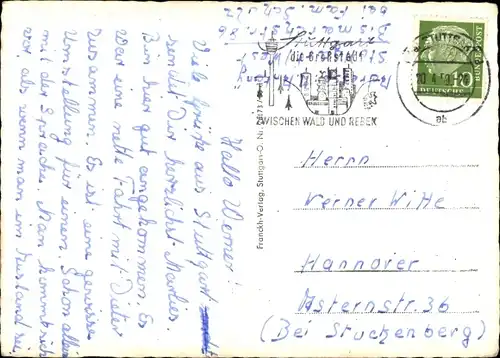 Hallo Werner!
Viele Grüße aus Stuttgart
sendet Dir herzlichst Marlies.
Bin hier gut angekommen. Es
war eine nette Fahrt mit Dieter
zusammen. Es ist eine gewisse
Umstellung für einen. Schon allein
mit der Sprache. Man kommt sich
vor, als wenn man im Ausland sei.
Franckh-Verlag, Stuttgart-O, Nr.
bei Fam. Schulz
Bismarckstr. 86
Stuttgart
die Großstadt
ZWISCHEN WALD UND REBEN
STUTTGART
DEUTSCHE BUNDESPOST
10
ab
Herrn
Werner Witte
Hannover
Asternstr. 36
(Bei Stuckenberg)